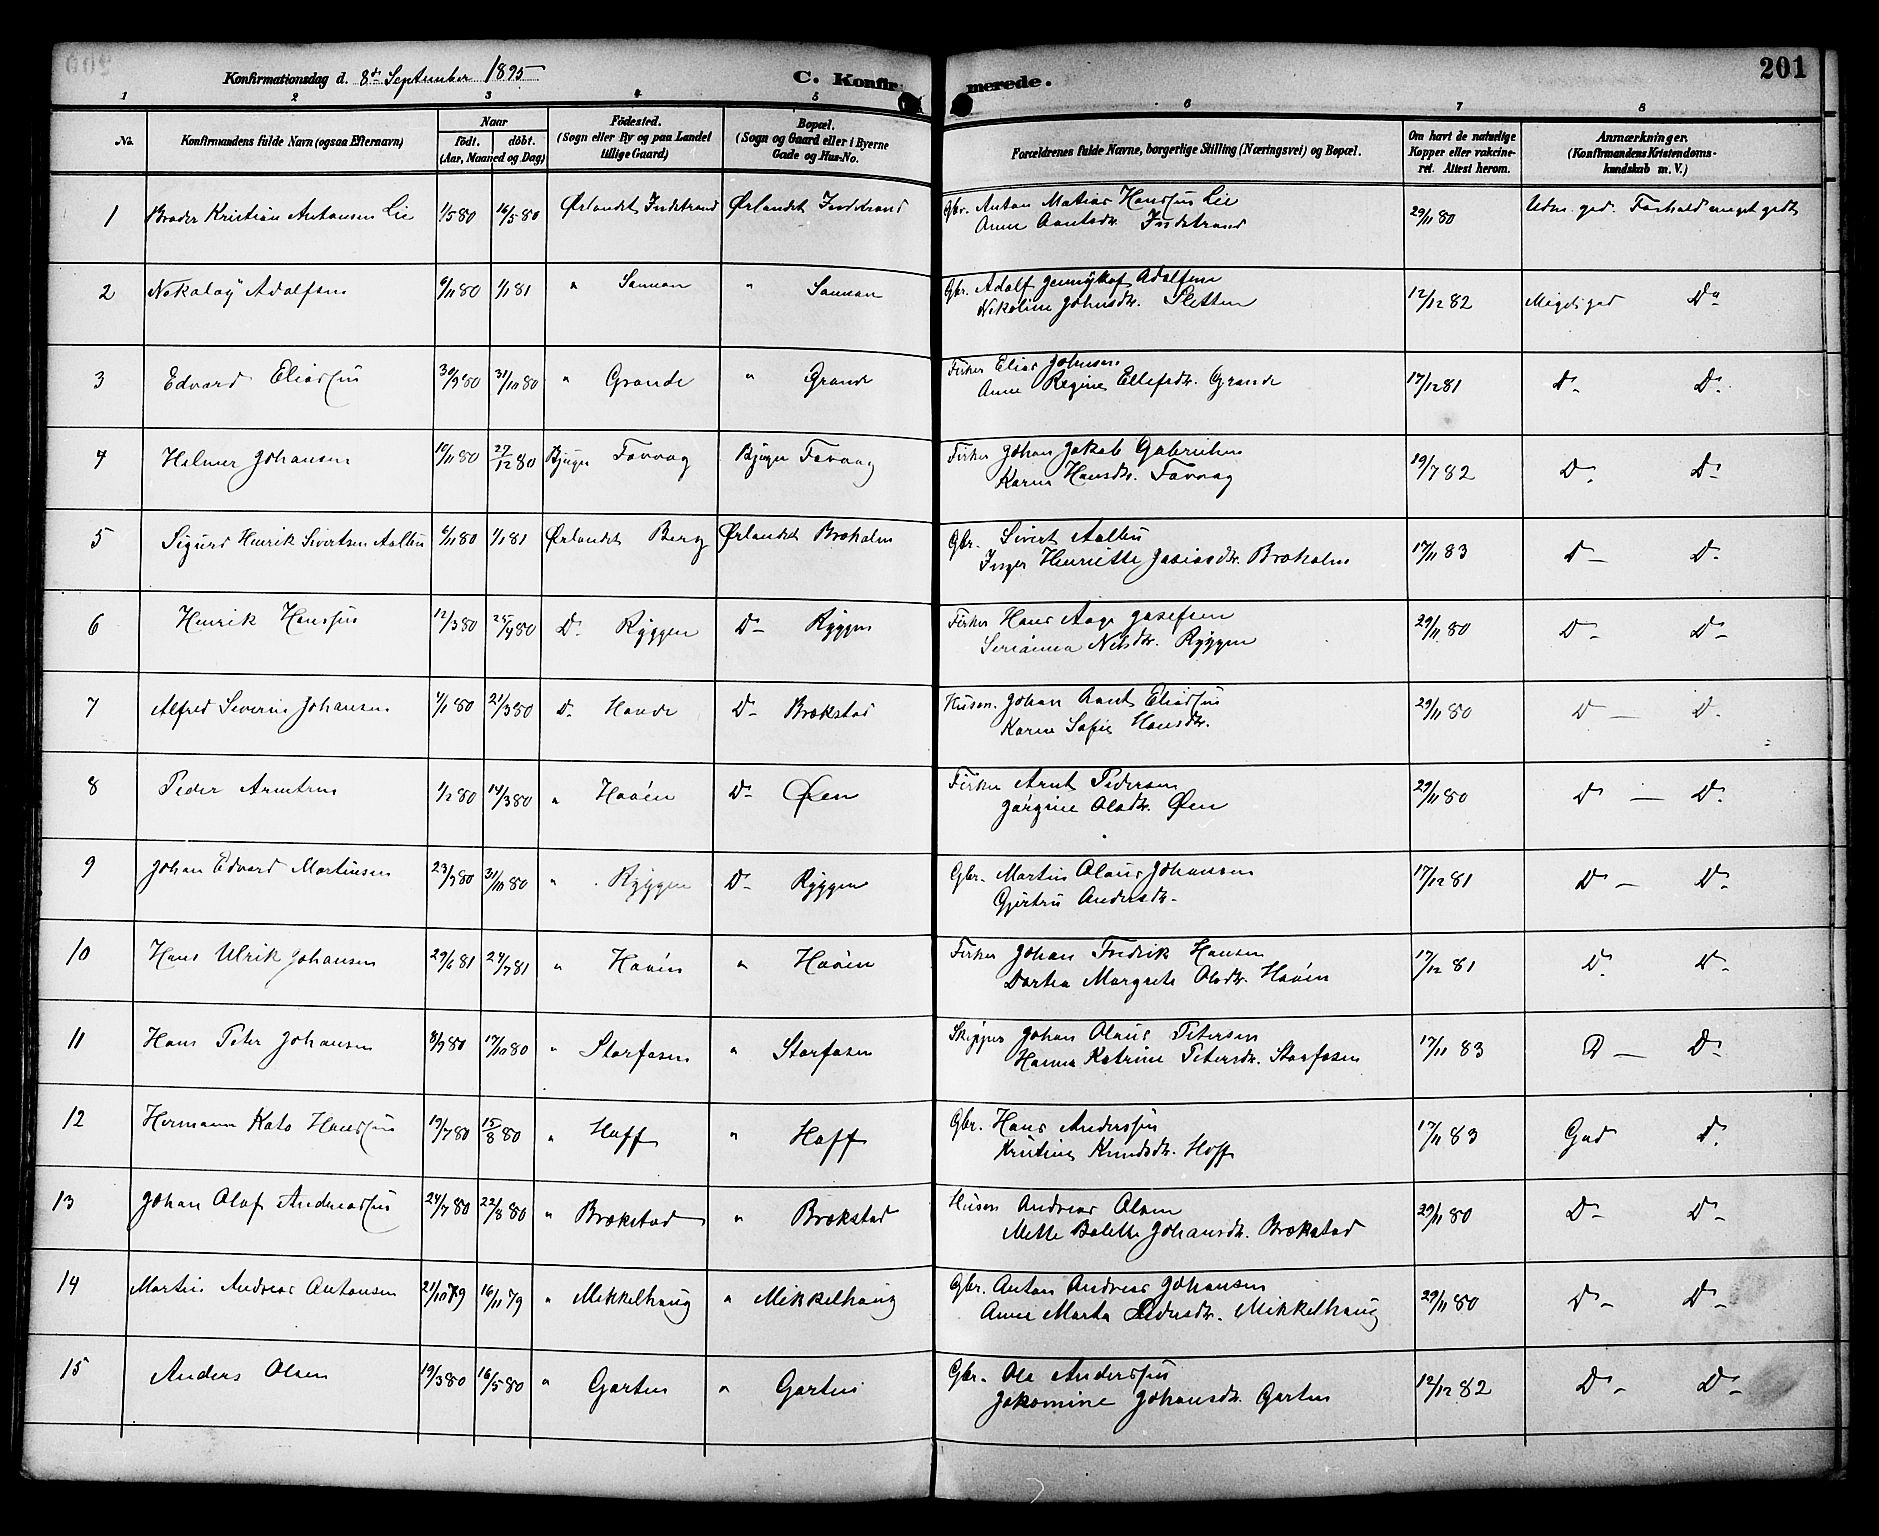 Konfirmationsdag d. 8de September 1895
C. Konfirmerede.
201
1 2 3 4 5 6 7 8
No. Konfirmandens fulde Navn (ogsaa Efternavn) Naar födt. döbt. (Aar, Maaned og Dag) Födested. (Sogn eller By og paa Landet tillige Gaard) Bopæl. (Sogn og Gaard eller i Byerne Gade og Hus-No. Forældrenes fulde Navne, borgerlige Stilling (Næringsvei) og Bopæl. Om havt de naturlige Kopper eller vakcineret. Attest herom. Anmærkninger. (Konfirmandens Kristendomskundskab m. V.)
1 Broder Kristian Antonsen Lie 1/5 80 16/5 80 Ørlandet Indstrand Ørlandet Indstrand Gbr. Anton Matias Hansen Lie 29/11 80 Udm. god. Forhold meget godt
Anne Arntsdr. Indstrand
2 Nekolay Adolfsen 6/11 80 1/1 81 " " Gbr. Adolf Adolfsen 12/12 82 Meget god Do
Nekoline Johnsdr. Sletten
3 Edvard Eliassen 30/9 80 31/10 80 " Grande " Grande Fisker Elias Johnsen 17/12 81 Do Do
Anne Regine Ellefsdr. Grande
4 Helmer Johansen 10/11 80 27/12 80 Bjugn Favvag Bjugn Favvag Fisker Johan Jakob Gabrielsen 19/7 82 Do Do
Karen Hansdr. Favvag
5 Sigurd Henrik Sivertsen Aalbu 6/11 80 1/1 81 Ørlandet Berg Ørlandet Brøholm Gbr. Sivert Aalbu 17/11 83 Do Do
Inger Henriette Brøholm
6 Henrik Hanssen 12/3 80 25/4 80 Do Ryggen Do Ryggen Fisker Hans Aage Josefsen 29/11 80 Do Do
Serianna Nelsdr. Ryggen
7 Alfred Severin Johansen 4/1 80 21/3 80 Do Hovde Do Brækstad Husm. Johan Arnt Eliassen 29/11 80 Do Do
Karen Sofie Hansdr.
8 Peder Arntsen 1/2 80 14/3 80 " Hovén Do Øen Fisker Arnt Pedersen 29/11 80 Do Do
Jørgine Olsdr. Øen
9 Johan Edvard Martinsen 23/9 80 31/10 80 " Ryggen Do Ryggen Gbr. Martin Olaus Johansen 17/12 81 Do Do
Gjertru Andersdr.
10 Hans Ulrik Johansen 29/6 81 24/7 81 " Hovén " Hovén Fisker Johan Fredrik Hansen 17/12 81 Do Do
Dortea Margrete Olsdr. Hovén
11 Hans Peter Johansen 8/9 80 17/10 80 " Storfosen " Storfosen Skipper Johan Olaus Petersen 17/11 83 Do Do
Hanna Katrine Petersdr. Storfosen
12 Hermann Kato Hanssen 19/7 80 15/8 80 " Hoff " Hoff Gbr. Hans Anderssen 17/11 83 God Do
Kristine Knudsdr. Hoff
13 Johan Olaf Andreassen 24/7 80 22/8 80 " Brækstad " Brækstad Husm Andreas Olsen 29/11 80 Do Do
Mette Johansdr. Brækstad
14 Martin Andreas Antonsen 21/10 79 16/11 79 " Mikkelhaug " Mikkelhaug Gbr. Anton Andreas Johansen 29/11 80 Do Do
Anne Marta Pedersdr. Mikkelhaug
15 Anders Olsen 19/3 80 16/5 80 " Garten " Garten Gbr. Ole Anderssen 12/12 82 Do Do
Jakomine Johansdr. Garten